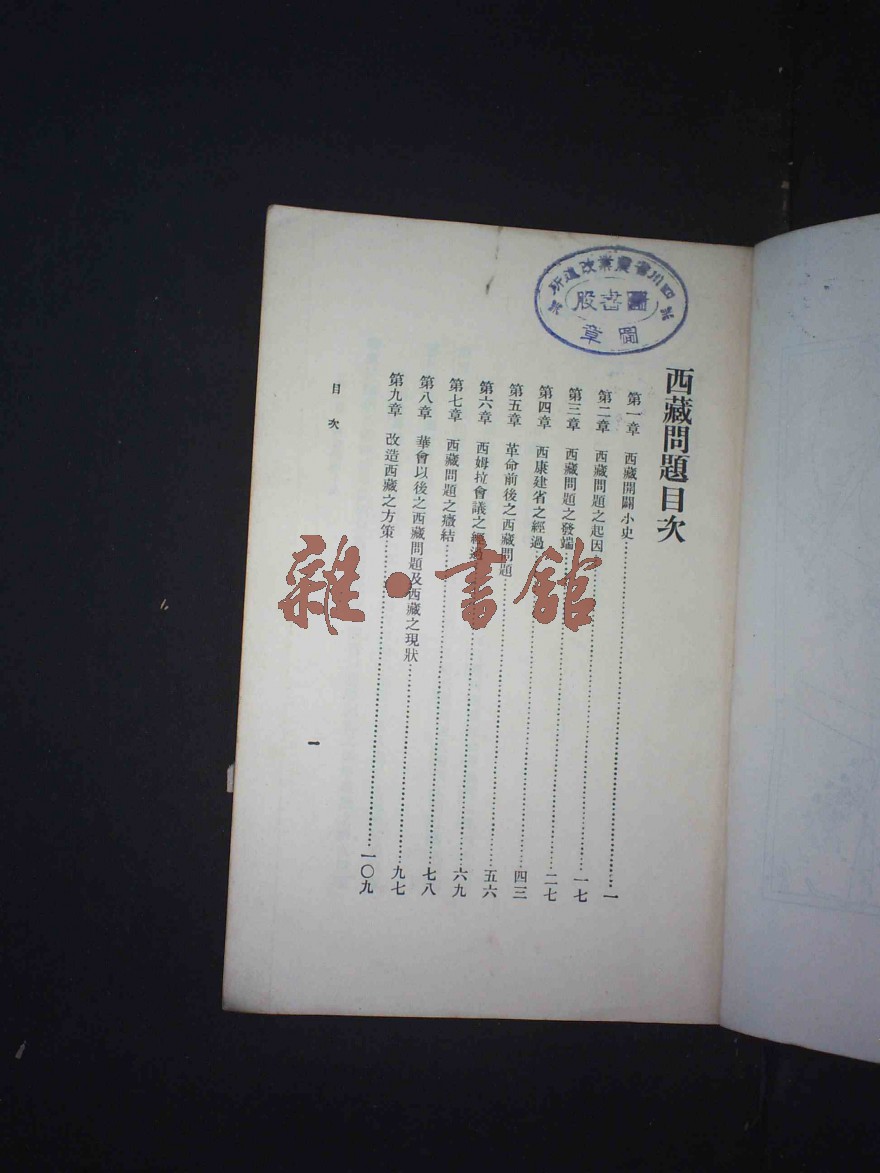 西藏問題目次
第一章　西藏開闢小史……一
第二章　西藏問題之起因……一七
第三章　西藏問題之發端……二七
第四章　西康建省之經過……四三
第五章　革命前後之西藏問題……五六
第六章　西姆拉會議之經過……六九
第七章　西藏問題之癥結……七八
第八章　華會以後之西藏問題及西藏之現狀……九七
第九章　改造西藏之方策……一〇九
目次
一
四川省農業改進所
圖書股
圖章
雜·書館